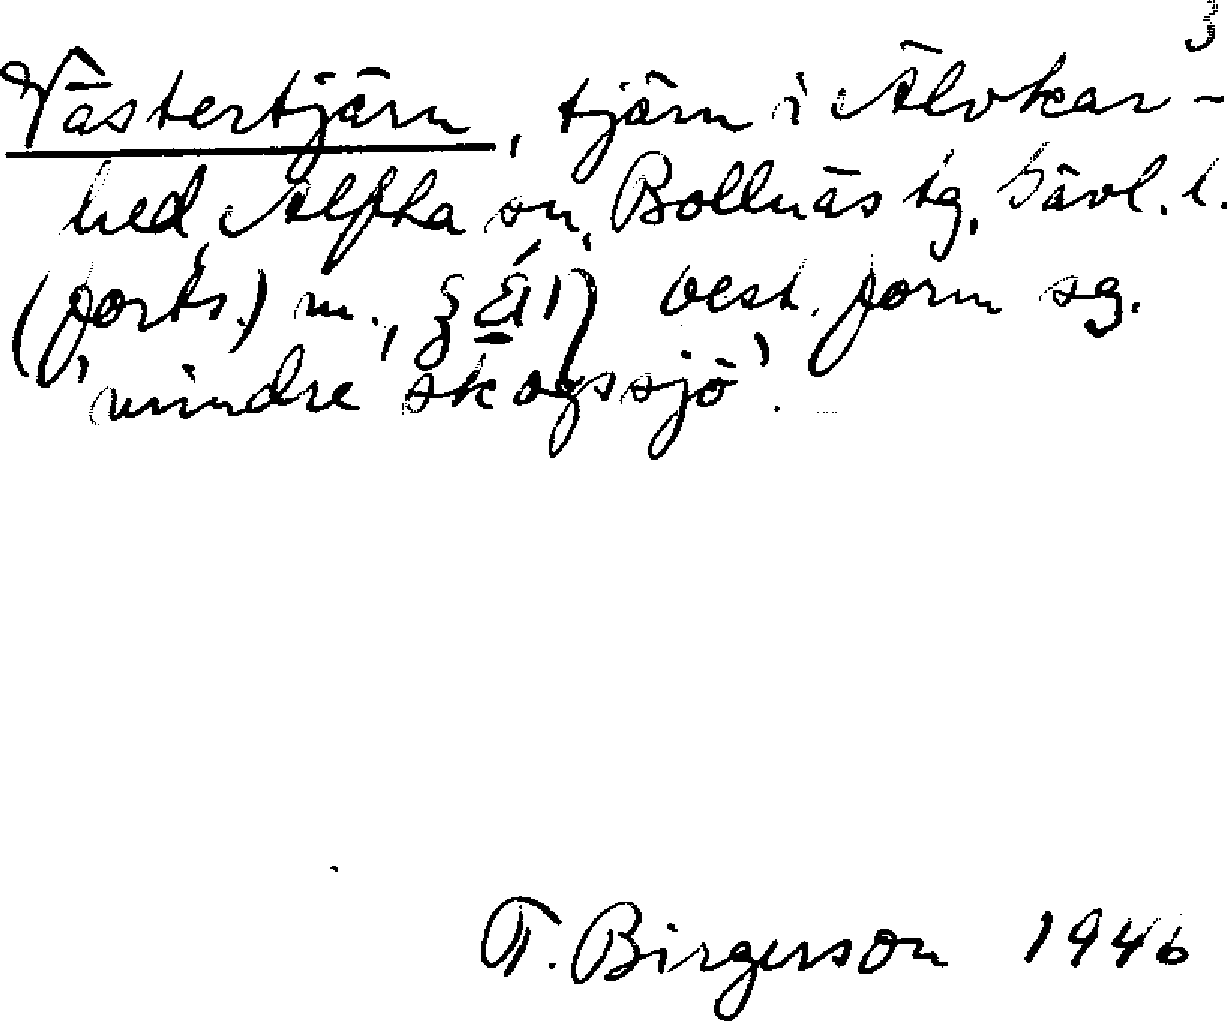 3
Västertjärn, tjärn i Älvkar-
hed, Alfta sn, Bollnäs tg, Gävl. l.
(forts.) m., best. form sg.
'mindre skogssjö'.
T. Birgerson 1946